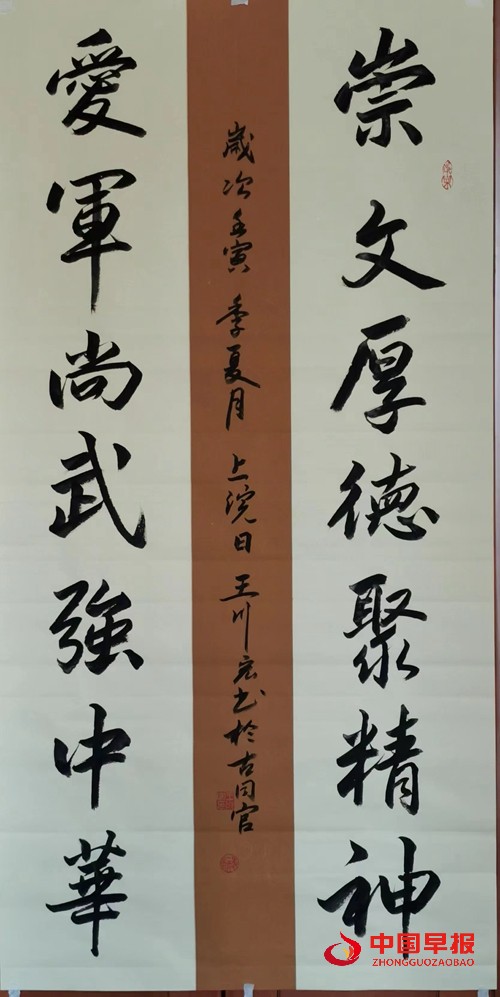 崇文厚德聚精神
愛軍尚武強中華
歲次壬寅季夏月上浣日王川宏书於古同官
中国早报
ZHONGGUOZAOBAO